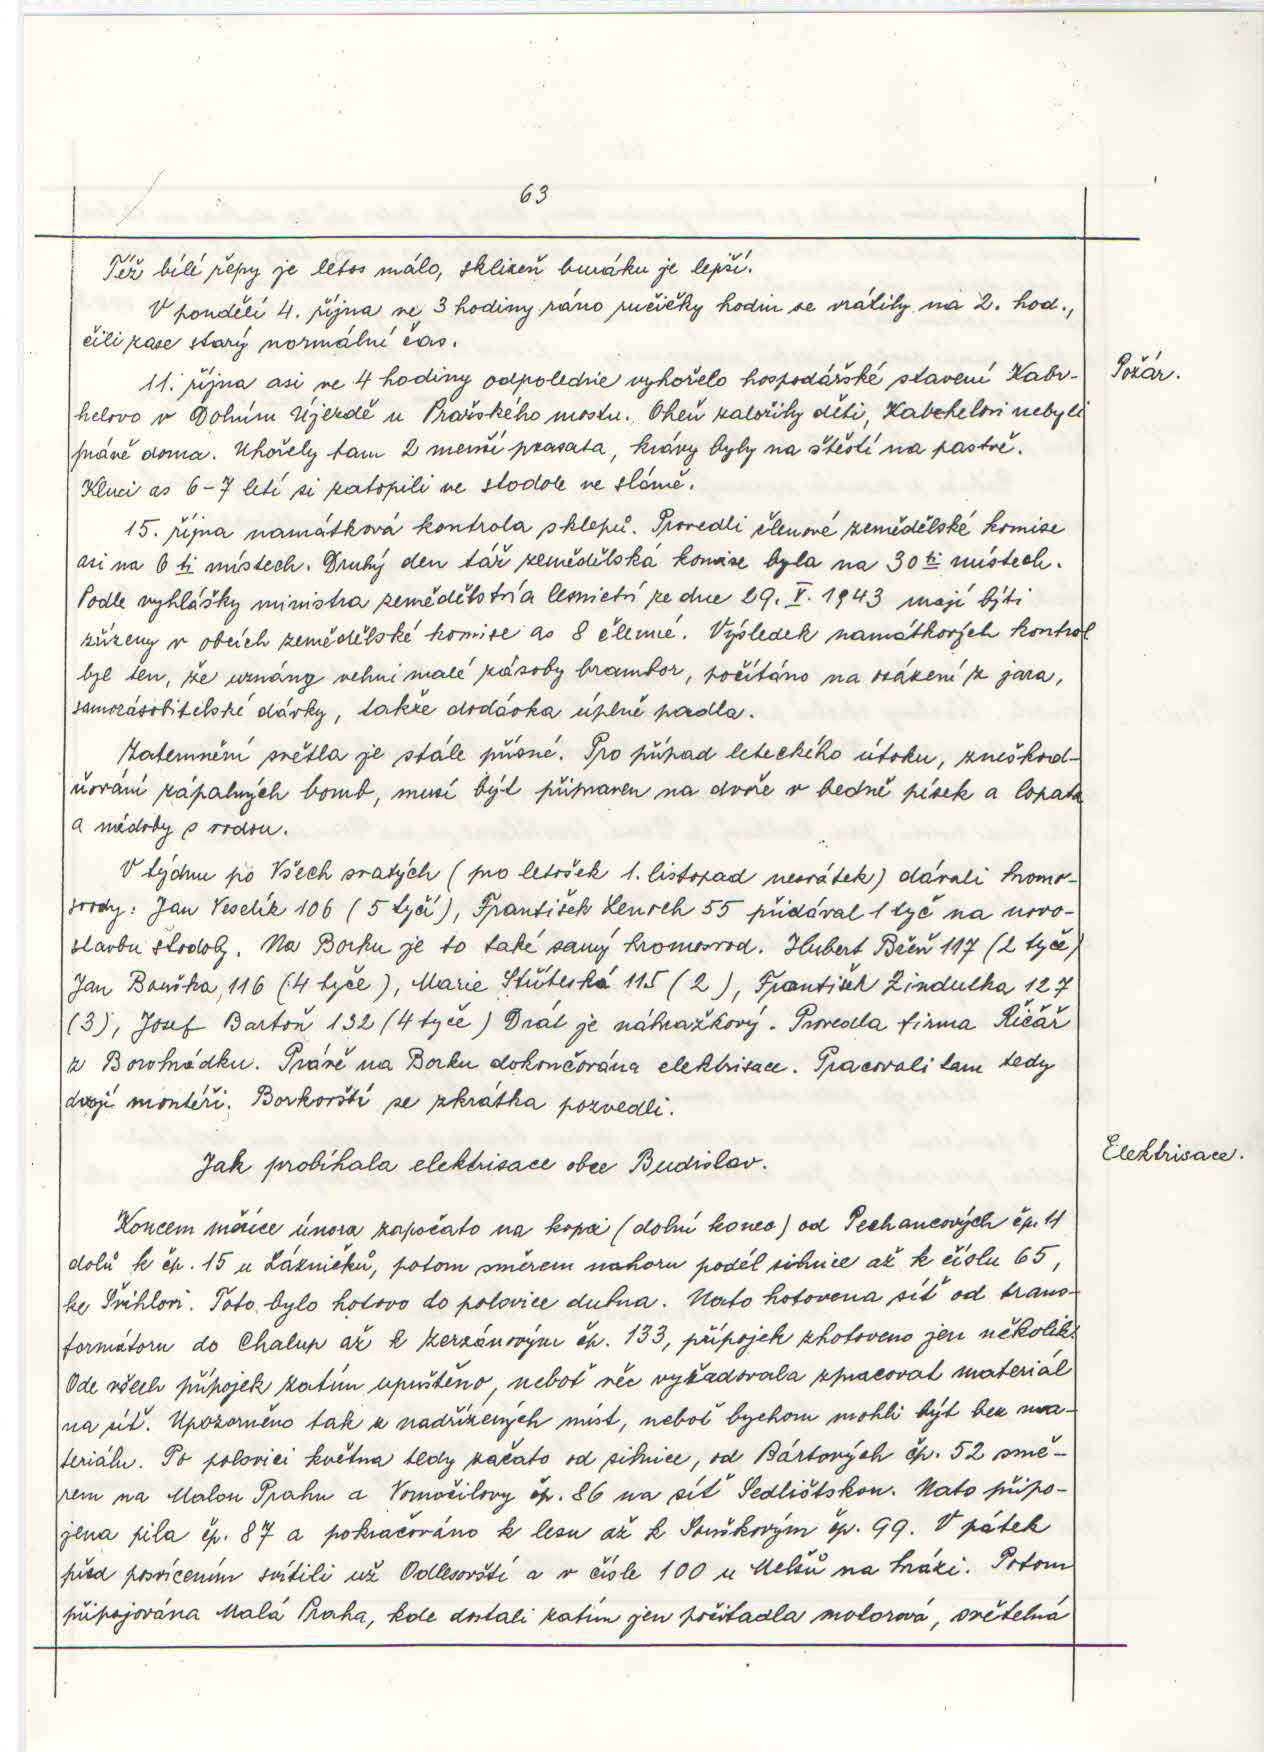 63
Též bílé řepy je letos málo, sklizeň buráku je lepší.
V pondělí 4. října ve 3 hodiny ráno ručičky hodin se vrátily na 2. hod.,
čili zase starý normální čas.
11. října asi ve 4 hodiny odpoledne vyhořelo hospodářské stavení Kabr-
Požár.
helovo v Dolním Újezdě u Pražského mostu. Oheň založily děti, Kabrhelovi nebyli
právě doma. Uhořely tam 2 menší prasata, krávy byly na štěstí na pastvě.
Kluci as 6-7 letí si zatopili ve stodole ve slámě.
15. října namátková kontrola sklepů. Provedli členové zemědělské komise
asi na 6 ti místech. Druhý den táž zemědělská komise byla na 30 ti místech.
Podle vyhlášky ministra zemědělství a lesnictví ze dne 29. V. 1943 mají býti
zřízeny v obcích zemědělské komise as 8 členné. Výsledek namátkových kontrol
byl ten, že uznány velmi malé zásoby brambor, počítáno na sázení z jara,
samozásobitelské dávky, takže dodávka úplně padla.
Zatemnění světla je stále přísné. Pro případ leteckého útoku, zneškod-
ňování zápalných bomb, musí být připraven na dvoře v bedně písek a lopata
a nádoby s vodou.
V týdnu po Všech svatých (pro letošek 1. listopad nesvátek) dávali hromo-
svody: Jan Veselík 106 (5 tyčí), František Lenoch 55 přidával 1 tyč na novo-
stavbu stodoly. Na Borku je to také samý hromosvod. Hubert Břeň 117 (2 tyče)
Jan Bouška 116 (4 tyče), Marie Stříteská 115 (2), František Zindulka 127
(3), Josef Bartoň 132 (4 tyče) Drát je náhražkový. Provedla firma Řičář
z Borohrádku. Právě na Borku dokončována elektrisace. Pracovali tam tedy
dvojí montéři. Borkovští se zkrátka pozvedli.
Jak probíhala elektrisace obce Budislav.
Elektrisace.
Koncem měsíce února započato na kopci (dolní konec) od Pechancových čp. 11
dolů k čp. 15 u Lázničků, potom směrem nahoru podél silnice až k číslu 65,
ke Švihlovi. Toto bylo hotovo do polovice dubna. Nato hotovena síť od trans-
formátoru do Chalup až k Kerzánovým čp. 133, přípojek zhotoveno jen několik.
Ode všech přípojek zatím upuštěno, neboť věc vyžadovala zpracovat materiál
na síť. Upozorněno tak z nadřízených míst, neboť bychom mohli být bez ma-
teriálu. Po polovici května tedy začato od silnice, od Bártových čp. 52 smě-
rem na Malou Prahu a Vomočilovy čp. 86 na síť Sedlištskou. Nato připo-
jena pila čp. 87 a pokračováno k lesu až k Souškovým čp. 99. V pátek
před posvícením svítili už Odlesovští a v čísle 100 u Melšů na hrázi. Potom
připojována Malá Praha, kde dostali zatím jen počitadla motorová, světelná